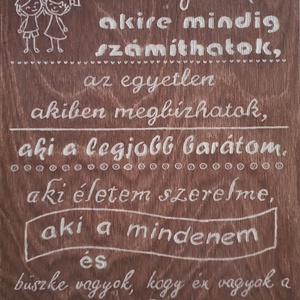 akire mindig
számíthatok,
az egyetlen
akiben megbízhatok,
aki a legjobb barátom,
aki életem szerelme,
aki a mindenem
és
büszke vagyok, hogy én vagyok a